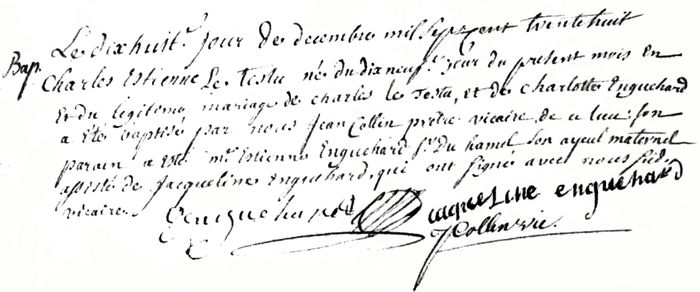 Bap.
Le dixhuit.e Jour de decembre mil Sept Cent trente huit
Charles Estienne Le Testu né du dixneuf.e Jour du present mois En
Et du legitome mariage de charles le Testu, et de charlotte Enguehard
a Eté baptisé par nous Jean Collin prêtre vicaire de a lieu: Son
parain a esté m.re Estienne Enguehard S.r Du hamel, Son ayeul maternel
assisté de Jacqueline Enguehard, qui ont signé avec nous Sud.
vicaire.
Eenguehard Jacqueline enguehard
JCollin vic.